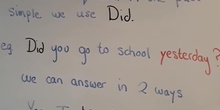 Simple we use Did.
eg Did you go to school yesterday?
we can answer in 2 ways